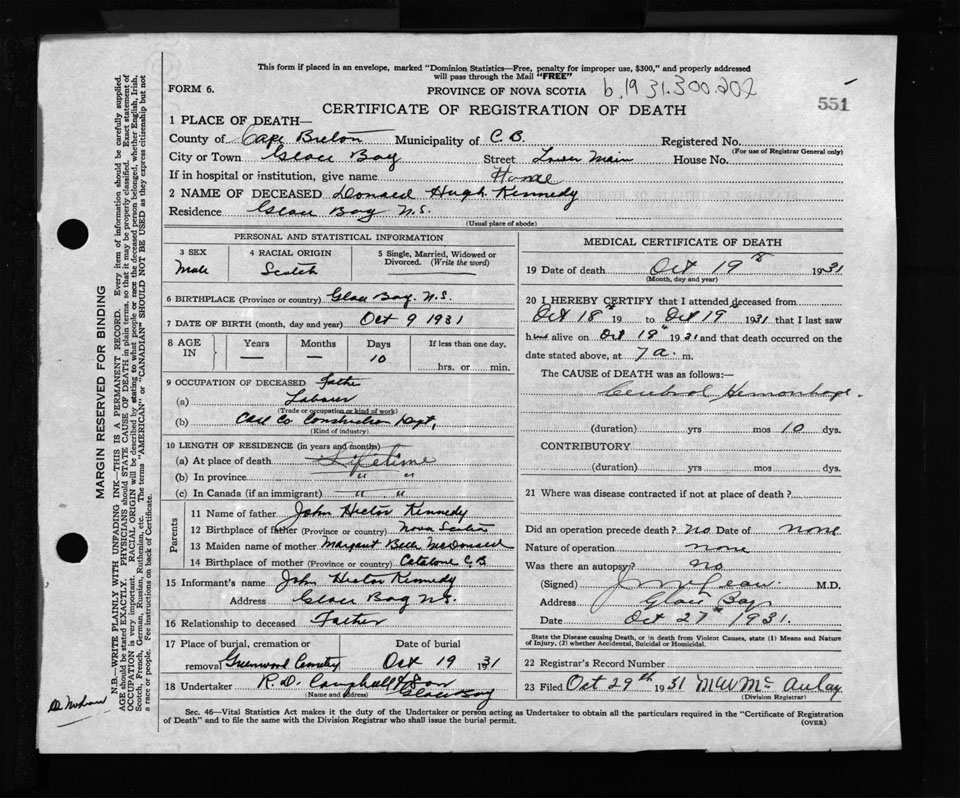 This form if placed in an envelope, marked "Dominion Statistics—Free, penalty for improper use, $300," and properly addressed
will pass through the Mail "FREE"
FORM 6.
PROVINCE OF NOVA SCOTIA
b.1931.300.202
551
CERTIFICATE OF REGISTRATION OF DEATH
1 PLACE OF DEATH—
County of Cape Breton Municipality of C.B. Registered No.
(For use of Registrar General only)
City or Town Glace Bay Street Lower Main House No.
If in hospital or institution, give name Home
2 NAME OF DECEASED Donald Hugh Kennedy
Residence Glace Bay N.S.
(Usual place of abode)
PERSONAL AND STATISTICAL INFORMATION
3 SEX
Male
4 RACIAL ORIGIN
Scotch
5 Single, Married, Widowed or
Divorced. (Write the word)
6 BIRTHPLACE (Province or country) Glace Bay. N.S.
7 DATE OF BIRTH (month, day and year) Oct 9 1931
8 AGE
IN
Years
—
Months
—
Days
10
If less than one day,
hrs. or min.
9 OCCUPATION OF DECEASED Father
(a) Labourer
(Trade or occupation or kind of work)
(b) Coal Co Construction Dept,
(Kind of industry)
10 LENGTH OF RESIDENCE (in years and months)
(a) At place of death Lifetime
(b) In province " "
(c) In Canada (if an immigrant) " "
Parents
11 Name of father John Hector Kennedy
12 Birthplace of father (Province or country) Nova Scotia
13 Maiden name of mother Margaret Bell McDonald
14 Birthplace of mother (Province or country) Catalone C.B
15 Informant's name John Hector Kennedy
Address Glace Bay N.S.
16 Relationship to deceased Father
17 Place of burial, cremation or Date of burial
removal Greenwood Cemetery Oct 19 1931
18 Undertaker R.D. Campbell & Son
(Name and address) Glace Bay
MEDICAL CERTIFICATE OF DEATH
19 Date of death Oct 19th 1931
(Month, day and year)
20 I HEREBY CERTIFY that I attended deceased from
Oct 18th 19 to Oct 19th 1931 that I last saw
him alive on Oct 18th 1931 and that death occurred on the
date stated above, at 7 a. m.
The CAUSE OF DEATH was as follows:—
Cerebral Hemorrhage.
(duration) yrs mos 10 dys.
CONTRIBUTORY
(duration) yrs mos dys.
21 Where was disease contracted if not at place of death?
Did an operation precede death? No Date of none
Nature of operation none
Was there an autopsy? No.
(Signed) M.D.
Address Glace Bay
Date Oct 27th 1931.
State the Disease causing Death, or in death from Violent Causes, state (1) Means and Nature
of Injury, (2) whether Accidental, Suicidal or Homicidal.
22 Registrar's Record Number
23 Filed Oct 29th 1931 McAulay
(Division Registrar)
Sec. 46—Vital Statistics Act makes it the duty of the Undertaker or person acting as Undertaker to obtain all the particulars required in the "Certificate of Registration
of Death" and to file the same with the Division Registrar who shall issue the burial permit.
(OVER)
MARGIN RESERVED FOR BINDING
N.B.—WRITE PLAINLY WITH UNFADING INK—THIS IS A PERMANENT RECORD. Every item of information should be carefully supplied.
AGE should be stated EXACTLY. PHYSICIANS should STATE CAUSE OF DEATH in plain terms, so that it may be properly classified. Exact statement of
OCCUPATION is very important. RACIAL ORIGIN will be described by stating to what people or race the deceased person belonged, whether English, Irish,
Scotch, French, German, Russian, Ruthenian, etc. The terms "AMERICAN" or "CANADIAN" SHOULD NOT BE USED as they express citizenship but not
a race or people. Fee instructions on back of Certificate.